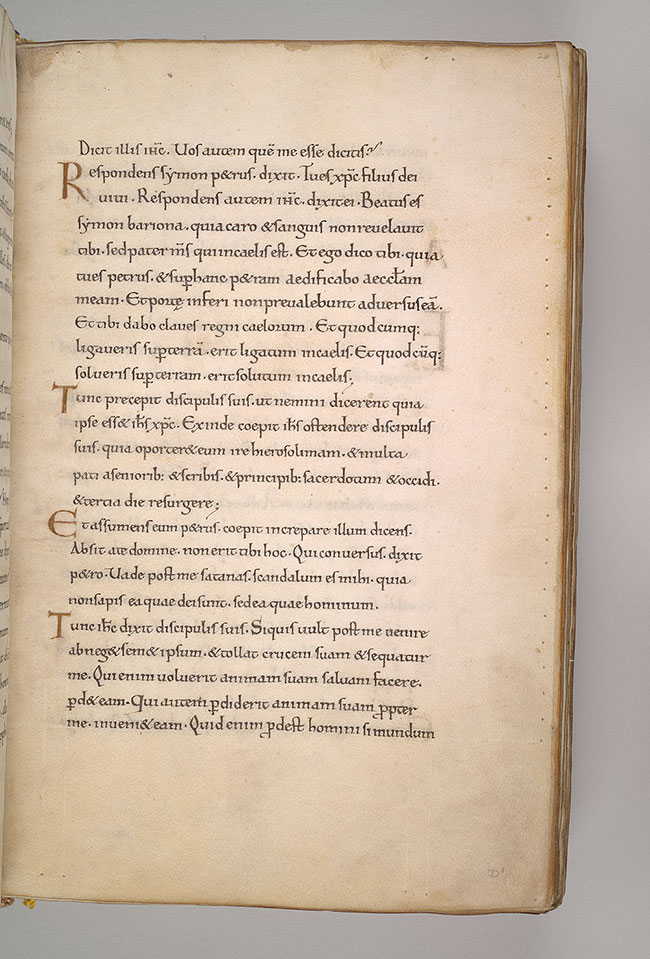 Dicit illis ih̄c. Uos autem quē me esse dicitis?
Respondens symon p&rus. dixit. Tu es xp̄c filius dei
uiui. Respondens autem ih̄c. dixit ei. Beatus es
symon bariona. quia caro & sanguis non reuelauit
tibi. sed pater m̄s qui in caelis est. Et ego dico tibi. quia
tu es petrus. & sup hanc p&ram aedificabo aeccl̄am
meam. Et porte inferi non prevalebunt adversus eā.
Et tibi dabo claves regni caelorum. Et quodcumq:
ligaveris sup terrā. erit ligatum in caelis. Et quodcūq:
solveris sup terram. erit solutum in caelis;
Tunc precepit discipulis suis. ut nemini dicerent quia
ipse ess& ih̄s xp̄c. Exinde coepit ih̄s ostendere discipulis
suis. quia oporter& eum ire hierosolimam. & multa
pati a seniorib: & scribis. & principib: sacerdotum & occidi.
& tertia die resurgere;
Et assumens eum p&rus. coepit increpare illum dicens.
Absit a te domine. non erit tibi hoc. Qui conversus. dixit
p&ro. Uade post me satanas. scandalum es mihi. quia
non sapis ea quae dei sunt. sed ea quae hominum.
Tunc ih̄c dixit discipulis suis. Si quis uult post me uenire
abneg& sem& ipsum. & tollat crucem suam & sequatur
me. Qui enim voluerit animam suam salvam facere.
ꝑd& eam. Qui autem ꝑdiderit animam suam ꝓpter
me. inveni& eam. Quid enim ꝓdest homini si mundum
D'